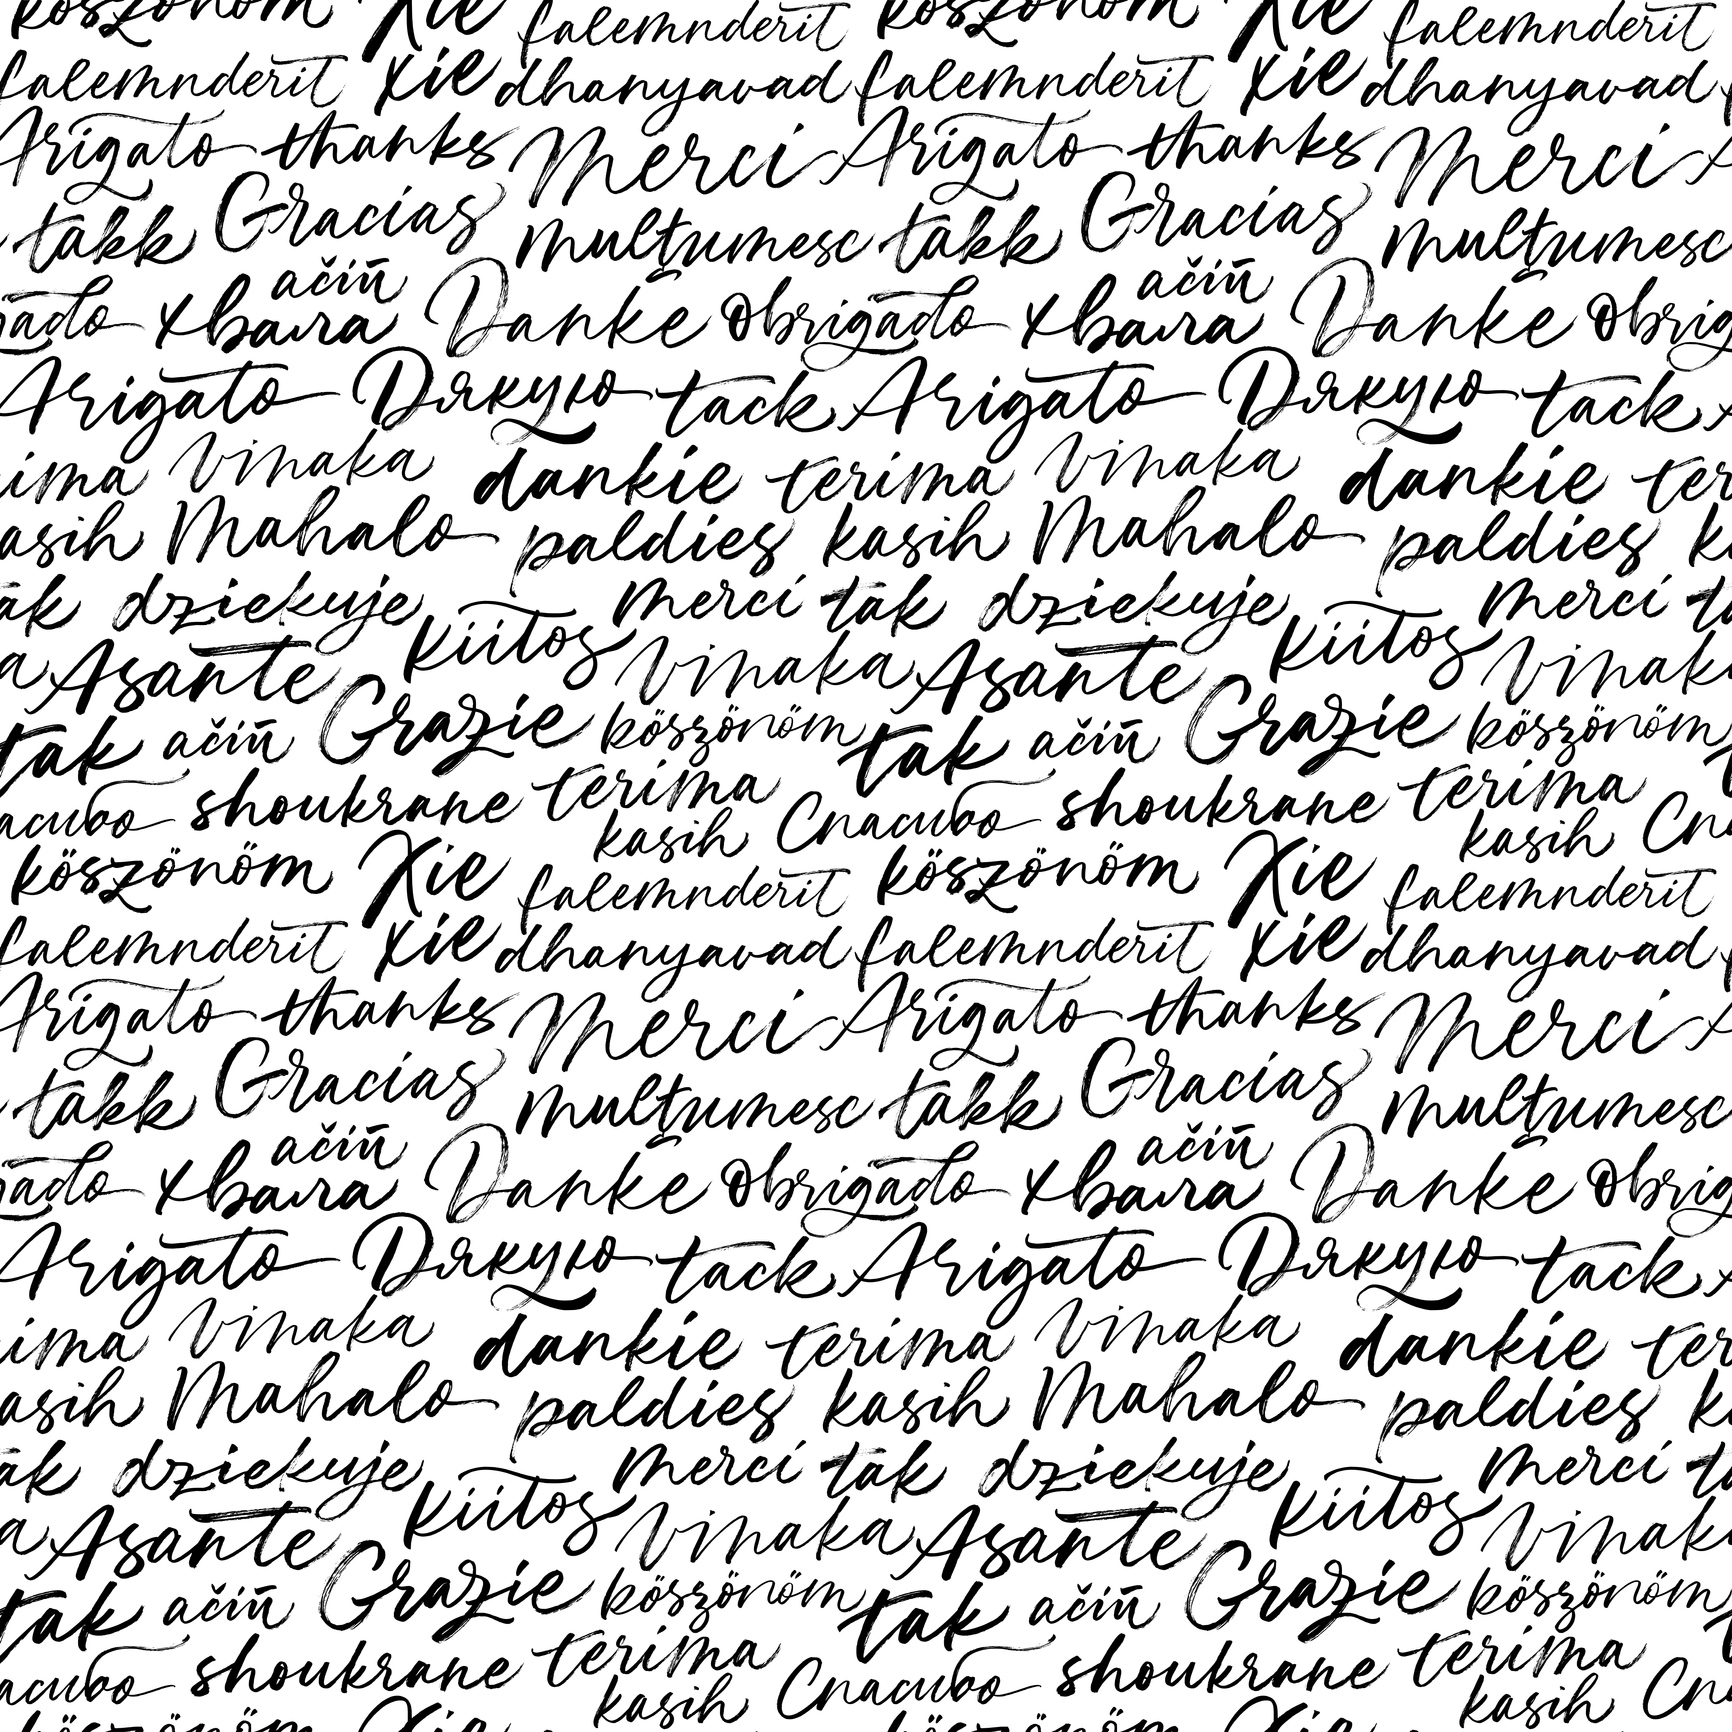 köszönöm Xie falemnderit köszönöm Xie falemnderit
falemnderit xie dhanyavad falemnderit xie dhanyavad
Arigato thanks Merci Arigato thanks Merci
takk Gracias multumesc takk Gracias multumesc
ačiū ačiū
gado хвала Danke obrigado хвала Danke obrig
Arigato Дякую tack Arigato Дякую tack
ima vinaka dankie terima vinaka dankie ter
asih Mahalo paldies kasih Mahalo paldies k
ak dziekuje merci tak dziekuje merci ta
kiitos kiitos
a Asante vinaka Asante vinak
tak ačiū Grazie köszönöm tak ačiū Grazie köszönöm
shoukrane terima shoukrane terima
асибо kasih Спасибо kasih Сп
köszönöm Xie falemnderit köszönöm Xie falemnderit
falemnderit xie dhanyavad falemnderit xie dhanyavad
Arigato thanks Merci Arigato thanks Merci
takk Gracias multumesc takk Gracias multumesc
ačiū ačiū
gado хвала Danke obrigado хвала Danke obrig
Arigato Дякую tack Arigato Дякую tack
ima vinaka dankie terima vinaka dankie ter
asih Mahalo paldies kasih Mahalo paldies k
ak dziekuje merci tak dziekuje merci ta
kiitos kiitos
a Asante vinaka Asante vinak
tak ačiū Grazie köszönöm tak ačiū Grazie köszönöm
shoukrane terima shoukrane terima
асибо kasih Спасибо kasih Сп